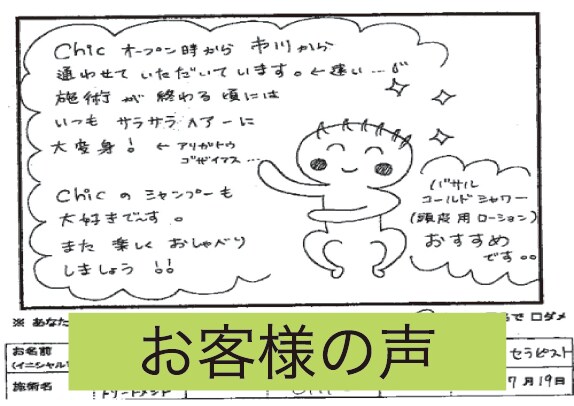 Chic オープン時から 市川から
通わせて いただいています。← 遠い…
施術 が 終わる 頃には
いつも サラサラ ヘアーに
大変身! ← アリガトウ
ゴザイマス…
Chic の シャンプーも
大好きです。
また 楽しく おしゃべり
しましょう !!
バサル
コールドシャワー
(頭皮用ローション)
おすすめ
です。。
※ あなた
で 口ダメ
お客様の声
お名前
(イニシャル
セラピスト
施術名
トリートメント
7月19日